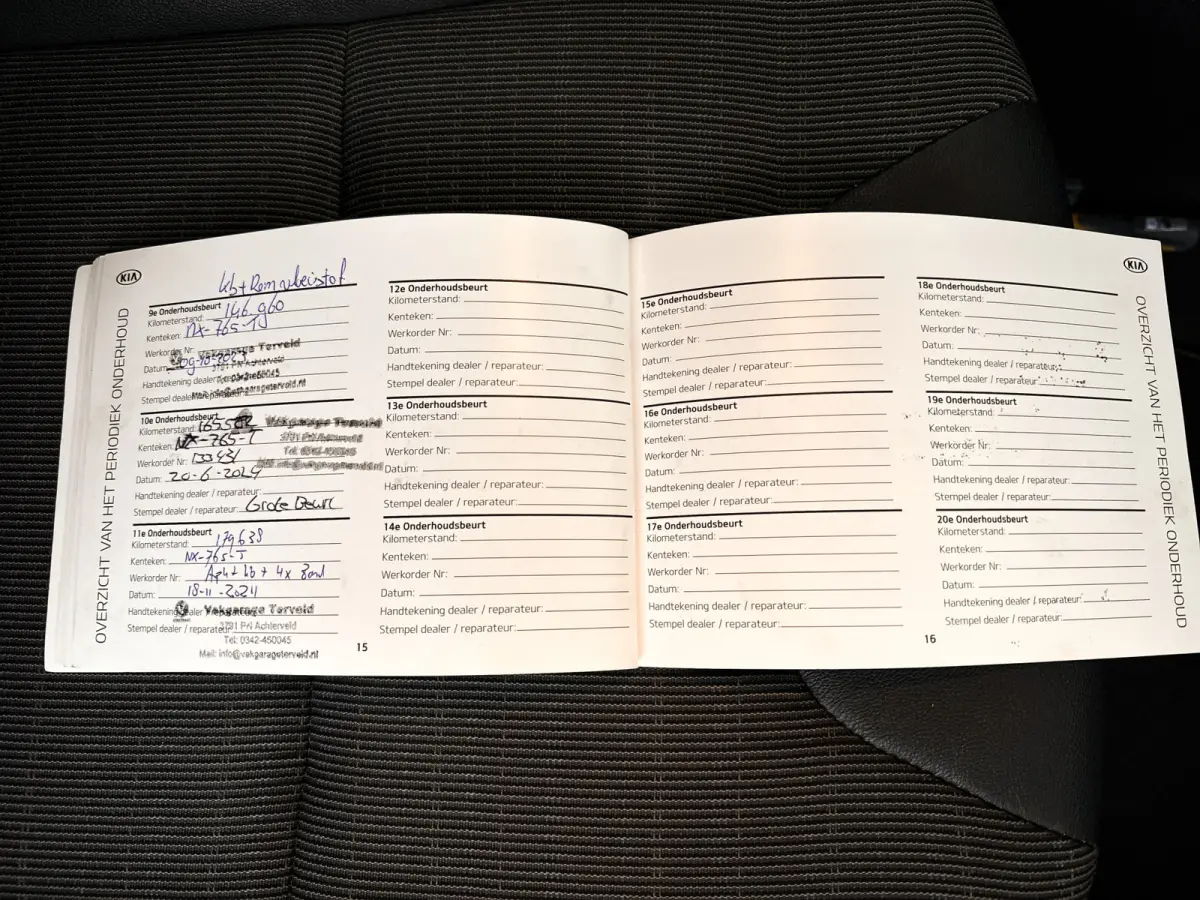 KIA
OVERZICHT VAN HET PERIODIEK ONDERHOUD
kb + Remvloeistof
9e Onderhoudsbeurt
Kilometerstand: 146960
Kenteken: NX-765-T
Werkorder Nr:
Datum: 09-10-2023
Handtekening dealer
Stempel dealer
Vakgarage Terveld
3781 PN Achterveld
Mail: info@vakgarageterveld.nl
10e Onderhoudsbeurt
Kilometerstand:
Kenteken: NX-765-T
Werkorder Nr: 133431
Datum: 20-6-2024
Handtekening dealer / reparateur:
Stempel dealer / reparateur: Grote Beurt
Vakgarage Terveld
3791 PN Achterveld
Tel: 0342-450045
Mail: info@vakgarageterveld.nl
11e Onderhoudsbeurt
Kilometerstand: 179638
Kenteken: NX-765-T
Werkorder Nr: Apk + kb + 4x Band
Datum: 18-11-2024
Handtekening dealer / reparateur:
Stempel dealer / reparateur:
Vakgarage Terveld
3791 PN Achterveld
Tel: 0342-450045
Mail: info@vakgarageterveld.nl
12e Onderhoudsbeurt
Kilometerstand:
Kenteken:
Werkorder Nr:
Datum:
Handtekening dealer / reparateur:
Stempel dealer / reparateur:
13e Onderhoudsbeurt
Kilometerstand:
Kenteken:
Werkorder Nr:
Datum:
Handtekening dealer / reparateur:
Stempel dealer / reparateur:
14e Onderhoudsbeurt
Kilometerstand:
Kenteken:
Werkorder Nr:
Datum:
Handtekening dealer / reparateur:
Stempel dealer / reparateur:
15
15e Onderhoudsbeurt
Kilometerstand:
Kenteken:
Werkorder Nr:
Datum:
Handtekening dealer / reparateur:
Stempel dealer / reparateur:
16e Onderhoudsbeurt
Kilometerstand:
Kenteken:
Werkorder Nr:
Datum:
Handtekening dealer / reparateur:
Stempel dealer / reparateur:
17e Onderhoudsbeurt
Kilometerstand:
Kenteken:
Werkorder Nr:
Datum:
Handtekening dealer / reparateur:
Stempel dealer / reparateur:
18e Onderhoudsbeurt
Kilometerstand:
Kenteken:
Werkorder Nr:
Datum:
Handtekening dealer / reparateur:
Stempel dealer / reparateur:
19e Onderhoudsbeurt
Kilometerstand:
Kenteken:
Werkorder Nr:
Datum:
Handtekening dealer / reparateur:
Stempel dealer / reparateur:
20e Onderhoudsbeurt
Kilometerstand:
Kenteken:
Werkorder Nr:
Datum:
Handtekening dealer / reparateur:
Stempel dealer / reparateur:
16
KIA
OVERZICHT VAN HET PERIODIEK ONDERHOUD